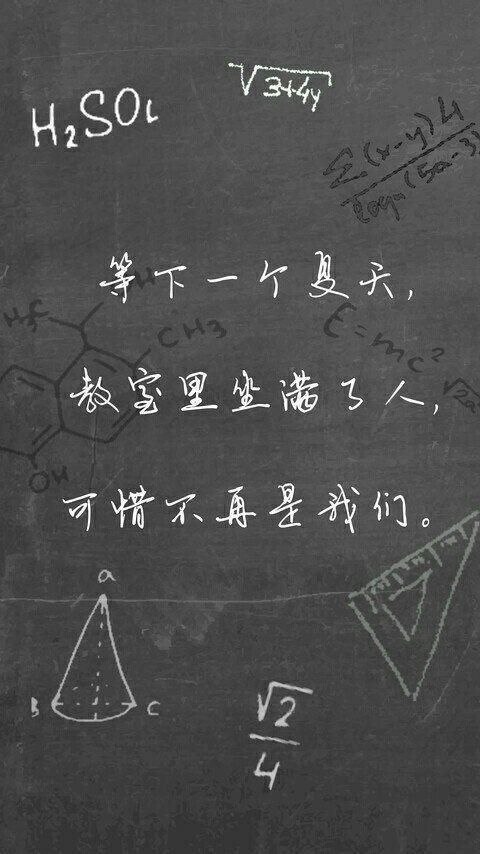 √3+4y
H₂SO₄
Σ(x-y)4
(5a-3)
等下一个夏天,
H₃C
CH3
E=mc²
教室里坐满了人,
√2a
OH
可惜不再是我们。
a
B
C
√2
4